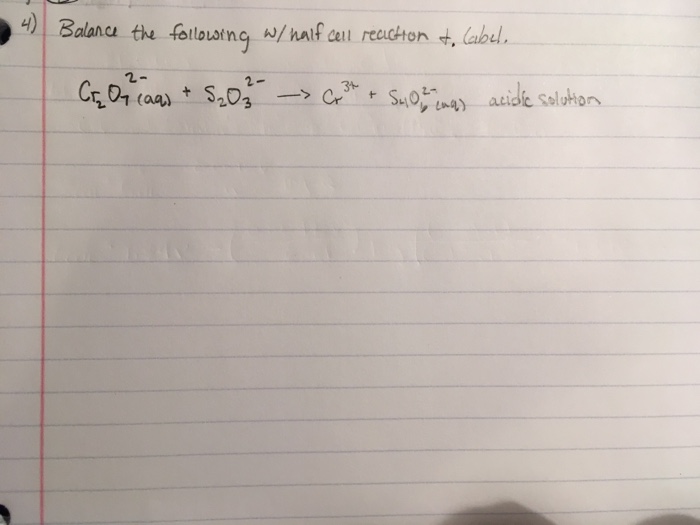 4) Balance the following w/ half cell reaction +. label.
Cr₂O₇²⁻(aq) + S₂O₃²⁻ → Cr³⁺ + S₄O₆²⁻(aq) acidic solution